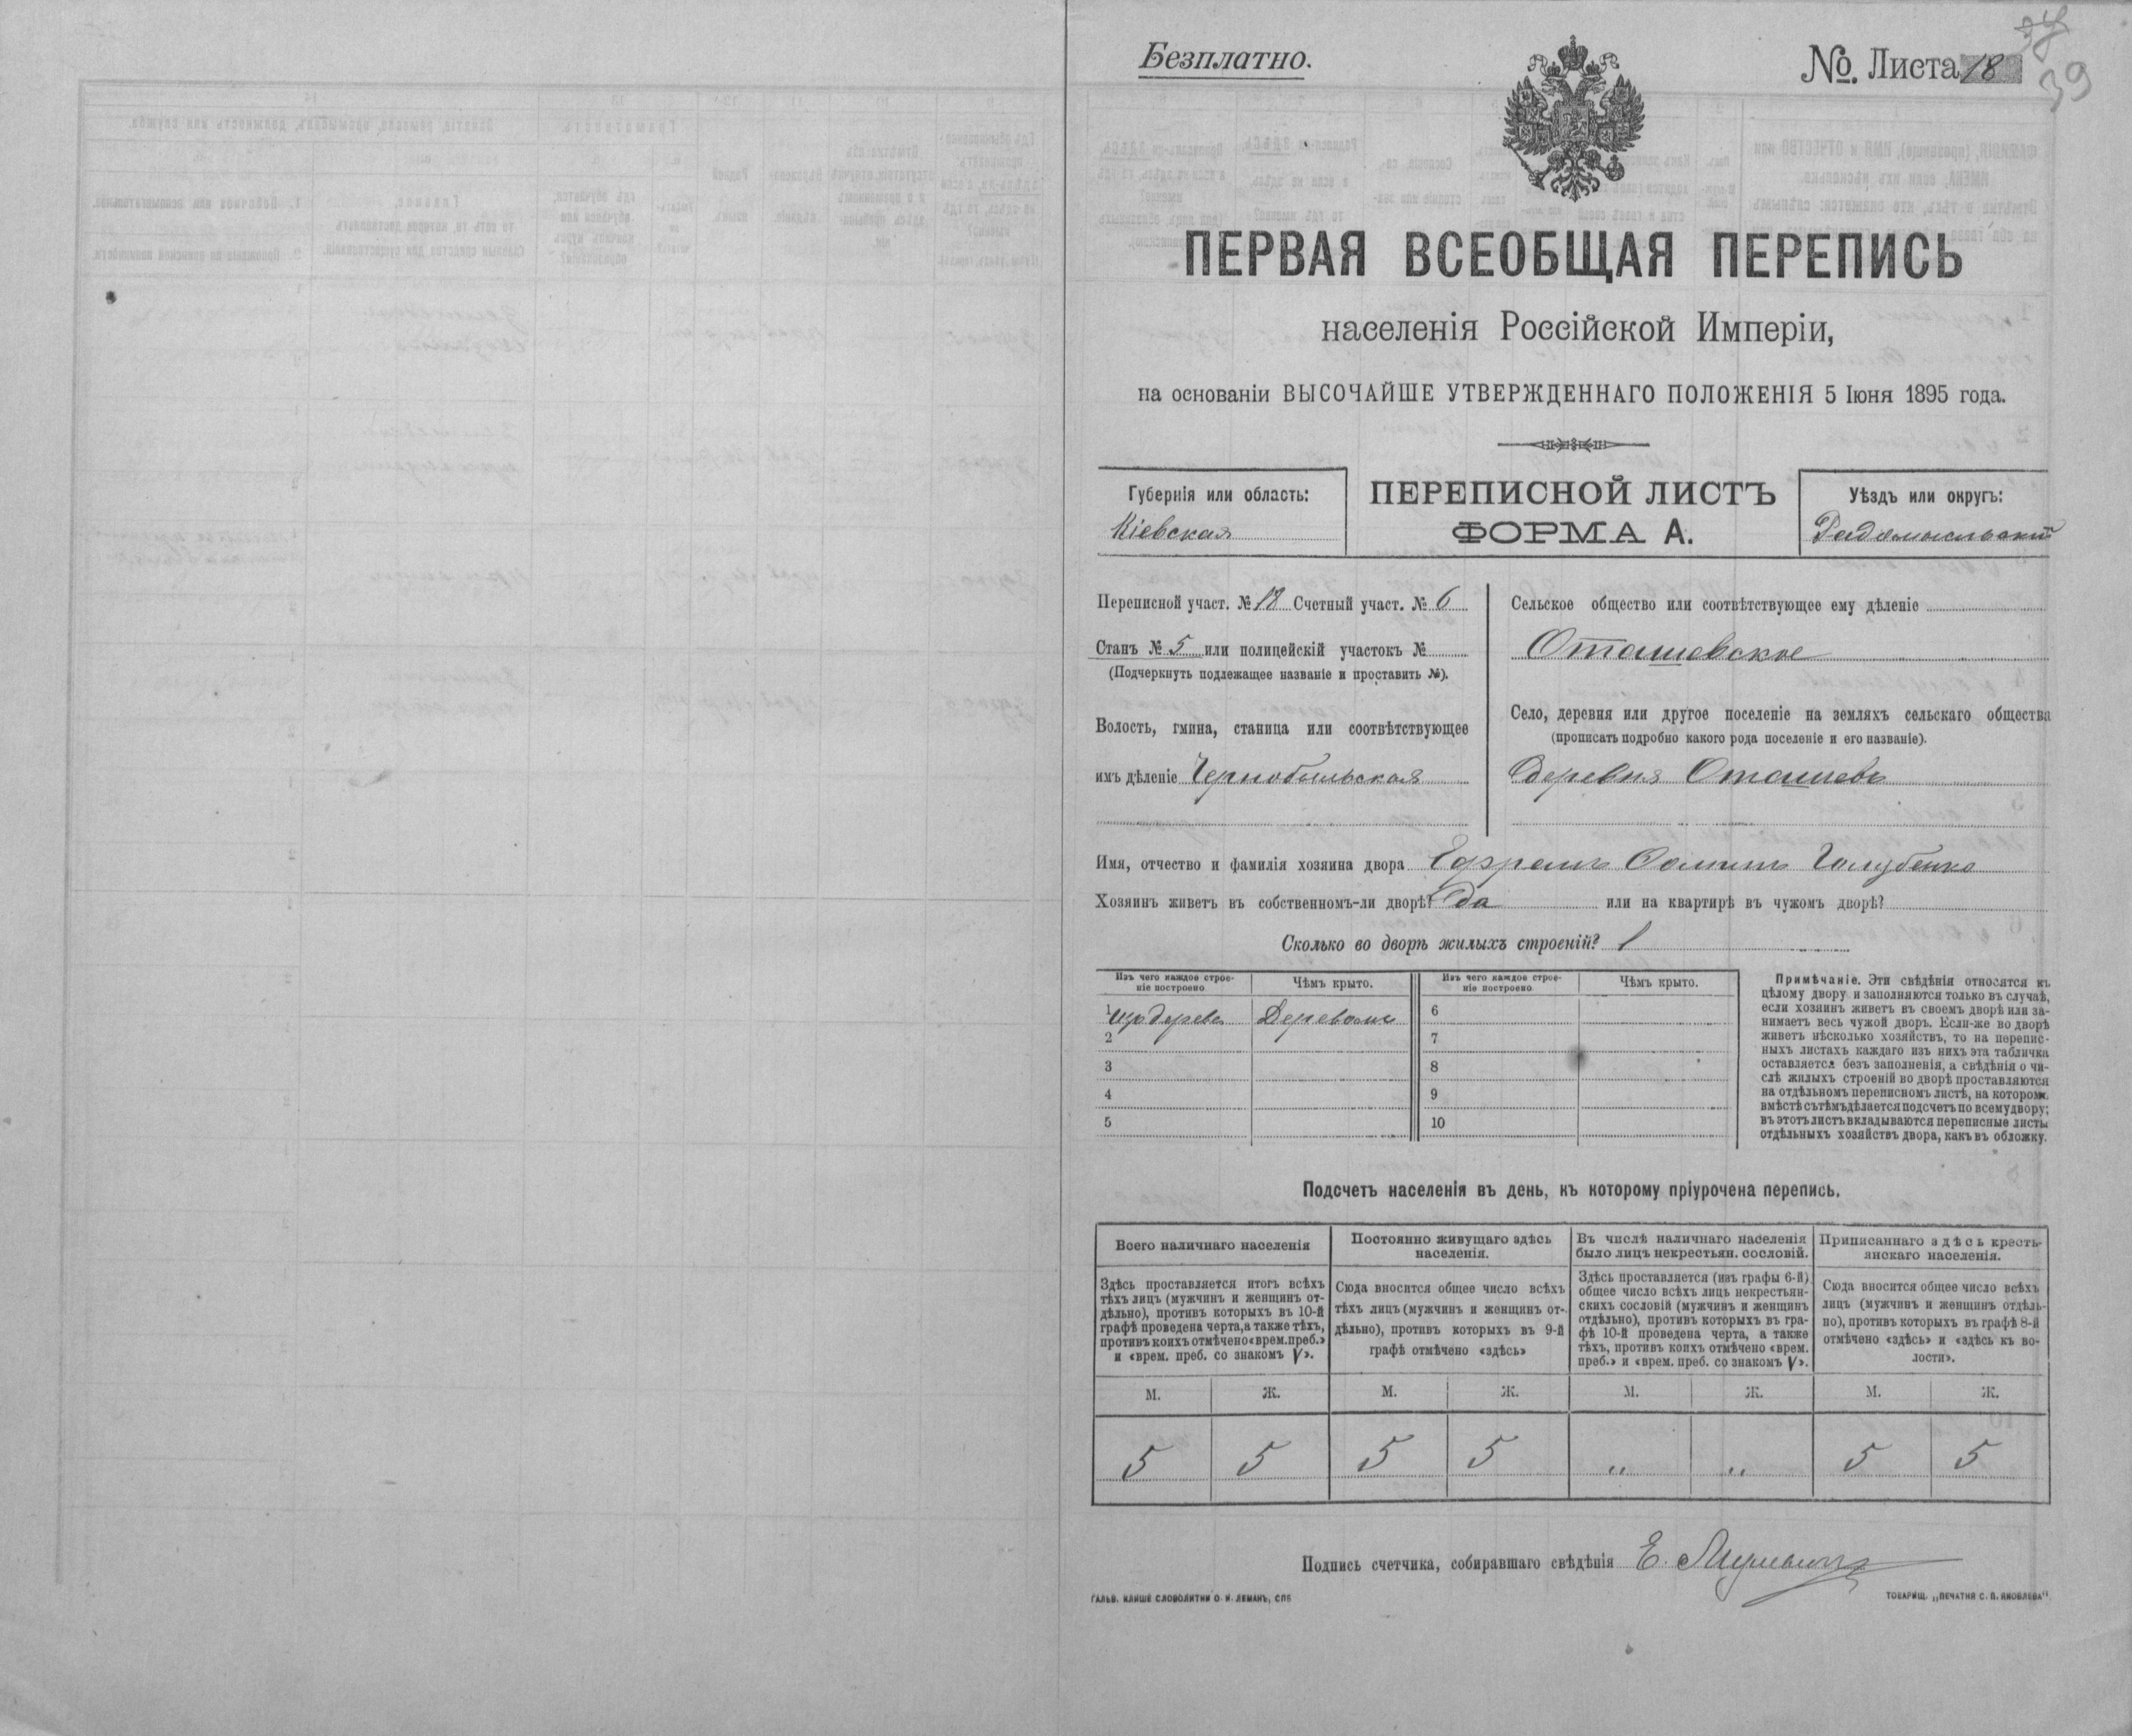 Безплатно.
№. Листа 18
39
ПЕРВАЯ ВСЕОБЩАЯ ПЕРЕПИСЬ
населенія Россійской Имперіи,
на основаніи ВЫСОЧАЙШЕ УТВЕРЖДЕННАГО ПОЛОЖЕНІЯ 5 Іюня 1895 года.
Губернія или область:
Кіевская
ПЕРЕПИСНОЙ ЛИСТЪ
ФОРМА А.
Уѣздъ или округъ:
Радомысльскій
Переписной участ. № 18 Счетный участ. № 6
Станъ № 5 или полицейскій участокъ №
(Подчеркнуть подлежащее названіе и проставить №).
Волость, гмина, станица или соотвѣтствующее
имъ дѣленіе Чернобыльская
Сельское общество или соотвѣтствующее ему дѣленіе
Оташевское
Село, деревня или другое поселеніе на земляхъ сельскаго общества
(прописать подробно какого рода поселеніе и его названіе).
Деревня Оташевъ
Имя, отчество и фамилія хозяина двора Ефремъ Фоминъ Голубенко
Хозяинъ живетъ въ собственномъ-ли дворѣ? Да или на квартирѣ въ чужомъ дворѣ?
Сколько во дворѣ жилыхъ строеній? 1
Изъ чего каждое строе-
ніе построено
Чѣмъ крыто.
Изъ чего каждое строе-
ніе построено
Чѣмъ крыто.
1 изъ дерева Деревомъ 6
2 7
3 8
4 9
5 10
Примѣчаніе. Эти свѣдѣнія относятся къ
цѣлому двору и заполняются только въ случаѣ,
если хозяинъ живетъ въ своемъ дворѣ или за-
нимаетъ весь чужой дворъ. Если-же во дворѣ
живетъ нѣсколько хозяйствъ, то на перепис-
ныхъ листахъ каждаго изъ нихъ эта табличка
оставляется безъ заполненія, а свѣдѣнія о чи-
слѣ жилыхъ строеній во дворѣ проставляются
на отдѣльномъ переписномъ листѣ, на которомъ
вмѣстѣ съ тѣмъ дѣлается подсчетъ по всему двору;
въ этотъ листъ вкладываются переписные листы
отдѣльныхъ хозяйствъ двора, какъ въ обложку.
Подсчетъ населенія въ день, къ которому пріурочена перепись.
Всего наличнаго населенія
Здѣсь проставляется итогъ всѣхъ
тѣхъ лицъ (мужчинъ и женщинъ от-
дѣльно), противъ которыхъ въ 10-й
графѣ проведена черта, а также тѣхъ,
противъ коихъ отмѣчено «врем. преб.»
и «врем. преб. со знакомъ V».
Постоянно живущаго здѣсь
населенія.
Сюда вносится общее число всѣхъ
тѣхъ лицъ (мужчинъ и женщинъ от-
дѣльно), противъ которыхъ въ 9-й
графѣ отмѣчено «здѣсь»
Въ числѣ наличнаго населенія
было лицъ некрестьян. сословій.
Здѣсь проставляется (изъ графы 6-й)
общее число всѣхъ лицъ некрестьян-
скихъ сословій (мужчинъ и женщинъ
отдѣльно), противъ которыхъ въ гра-
фѣ 10-й проведена черта, а также
тѣхъ, противъ коихъ отмѣчено «врем.
преб.» и «врем. преб. со знакомъ V».
Приписаннаго здѣсь кресть-
янскаго населенія.
Сюда вносится общее число всѣхъ
лицъ (мужчинъ и женщинъ отдѣль-
но), противъ которыхъ въ графѣ 8-й
отмѣчено «здѣсь» и «здѣсь къ во-
лости».
М. Ж. М. Ж. М. Ж. М. Ж.
5 5 5 5 „ „ 5 5
Подпись счетчика, собиравшаго свѣдѣнія Е.
ГАЛЬВ. КЛИШЕ СЛОВОЛИТНИ О. И. ЛЕМАНЪ, СПБ
ТОВАРИЩ. „ПЕЧАТНЯ С. П. ЯКОВЛЕВА"